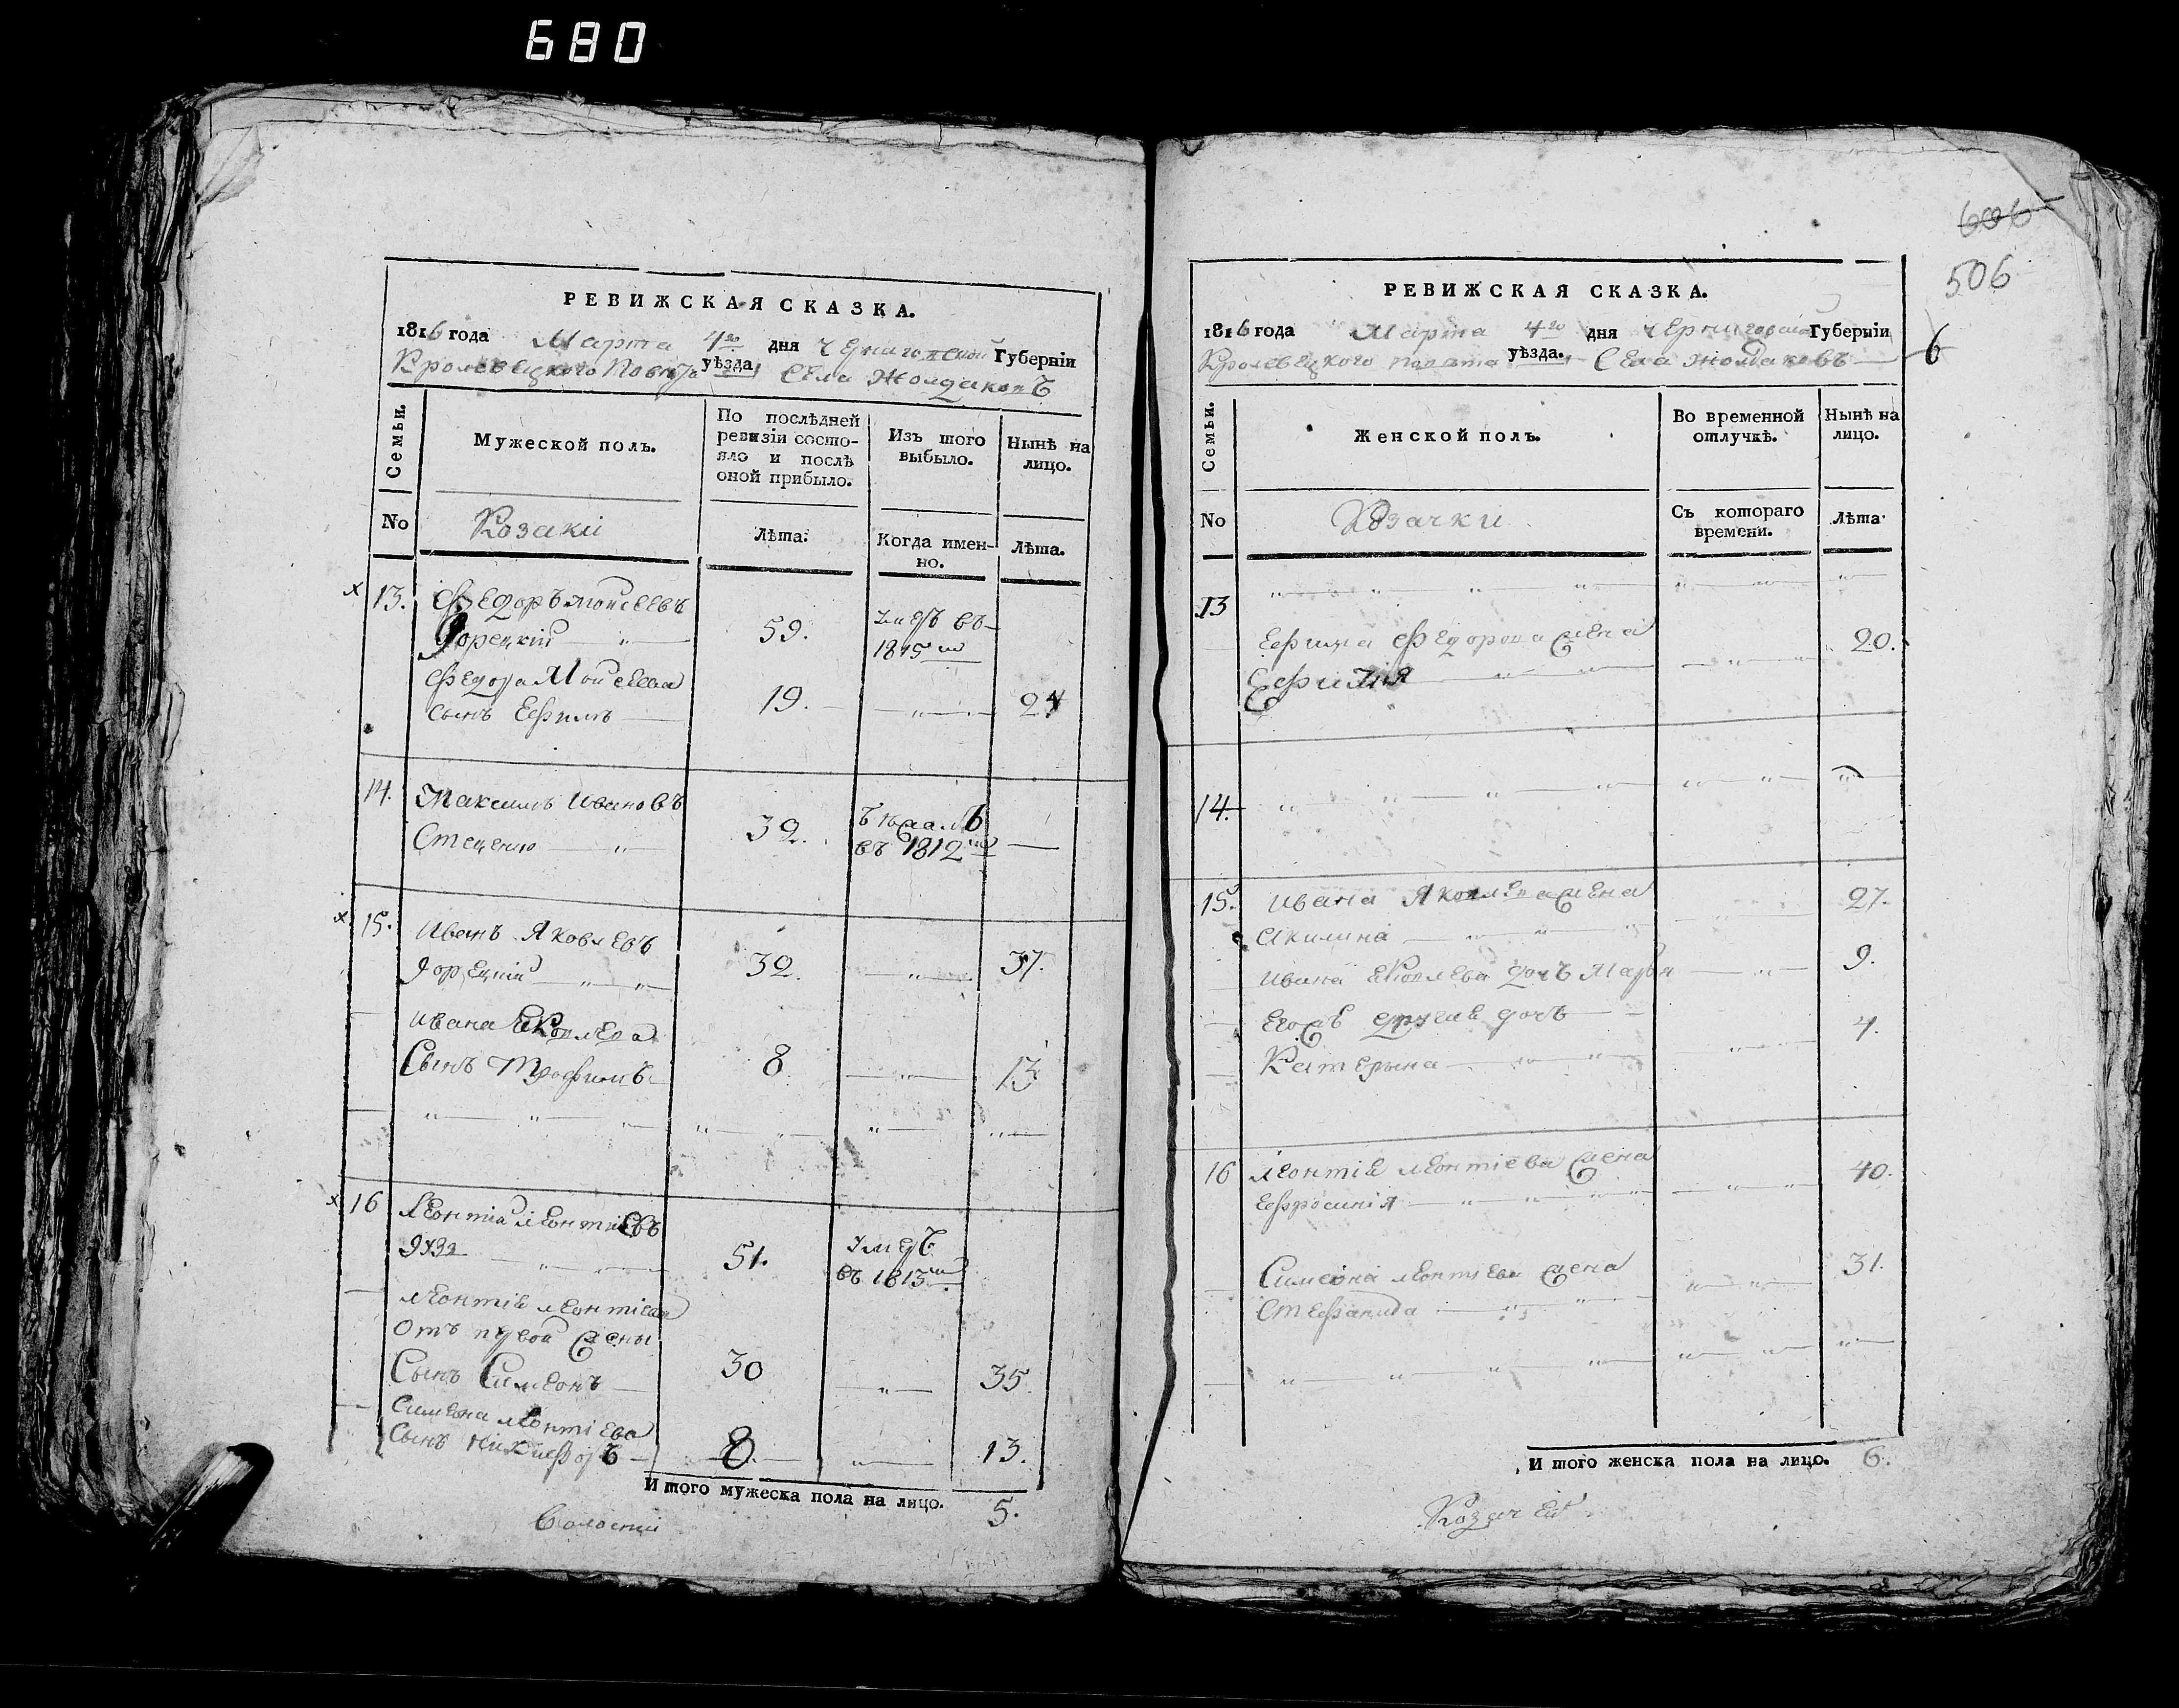 680
РЕВИЖСКАЯ СКАЗКА.
1816 года Марта 4го дня Черниговской Губерніи
Кролевецкого Повѣта уѣзда Села Жолдаковъ
Семьи.
Мужеской полъ.
По послѣдней ревизіи состояло и послѣ оной прибыло.
Изъ того выбыло.
Нынѣ на лицо.
No
Козаки
Лѣта.
Когда именно.
Лѣта.
x 13. Федоръ Моисеевъ
59. умеръ въ 1815м
Федора Моисеева
сынъ Ефимъ 19. 24
14. Максимъ Ивановъ
Стеценко 32. въ 1812м
x 15. Иванъ Яковлевъ
32. 37.
Ивана Яковлева
Сынъ Трофимъ 8. 13
x 16 Леонтій Леонтіевъ
51. умеръ въ 1813м
Леонтія Леонтіева
отъ первой жены
Сынъ Симеонъ 30 35.
Симеона Леонтіева
Сынъ Никифоръ 8. 13.
И того мужеска пола на лицо. 5.
606
506
6
РЕВИЖСКАЯ СКАЗКА.
1816 года Марта 4го дня Черниговской Губерніи
Кролевецкого Повѣта уѣзда. Села Жолдаковъ
Семьи.
Женской полъ.
Во временной отлучкѣ.
Нынѣ на лицо.
No
Козачки
Съ котораго времени.
Лѣта.
13
Ефима Федорова жена 20.
14.
15. Ивана Яковлева жена 27.
Акилина
Ивана Яковлева дочь Марья 9.
Его же другая дочь 4.
Катерына
16 Леонтія Леонтіева жена 40.
Ефросинія
Симеона Леонтіева жена 31.
Стефанида
И того женска пола на лицо. 6.